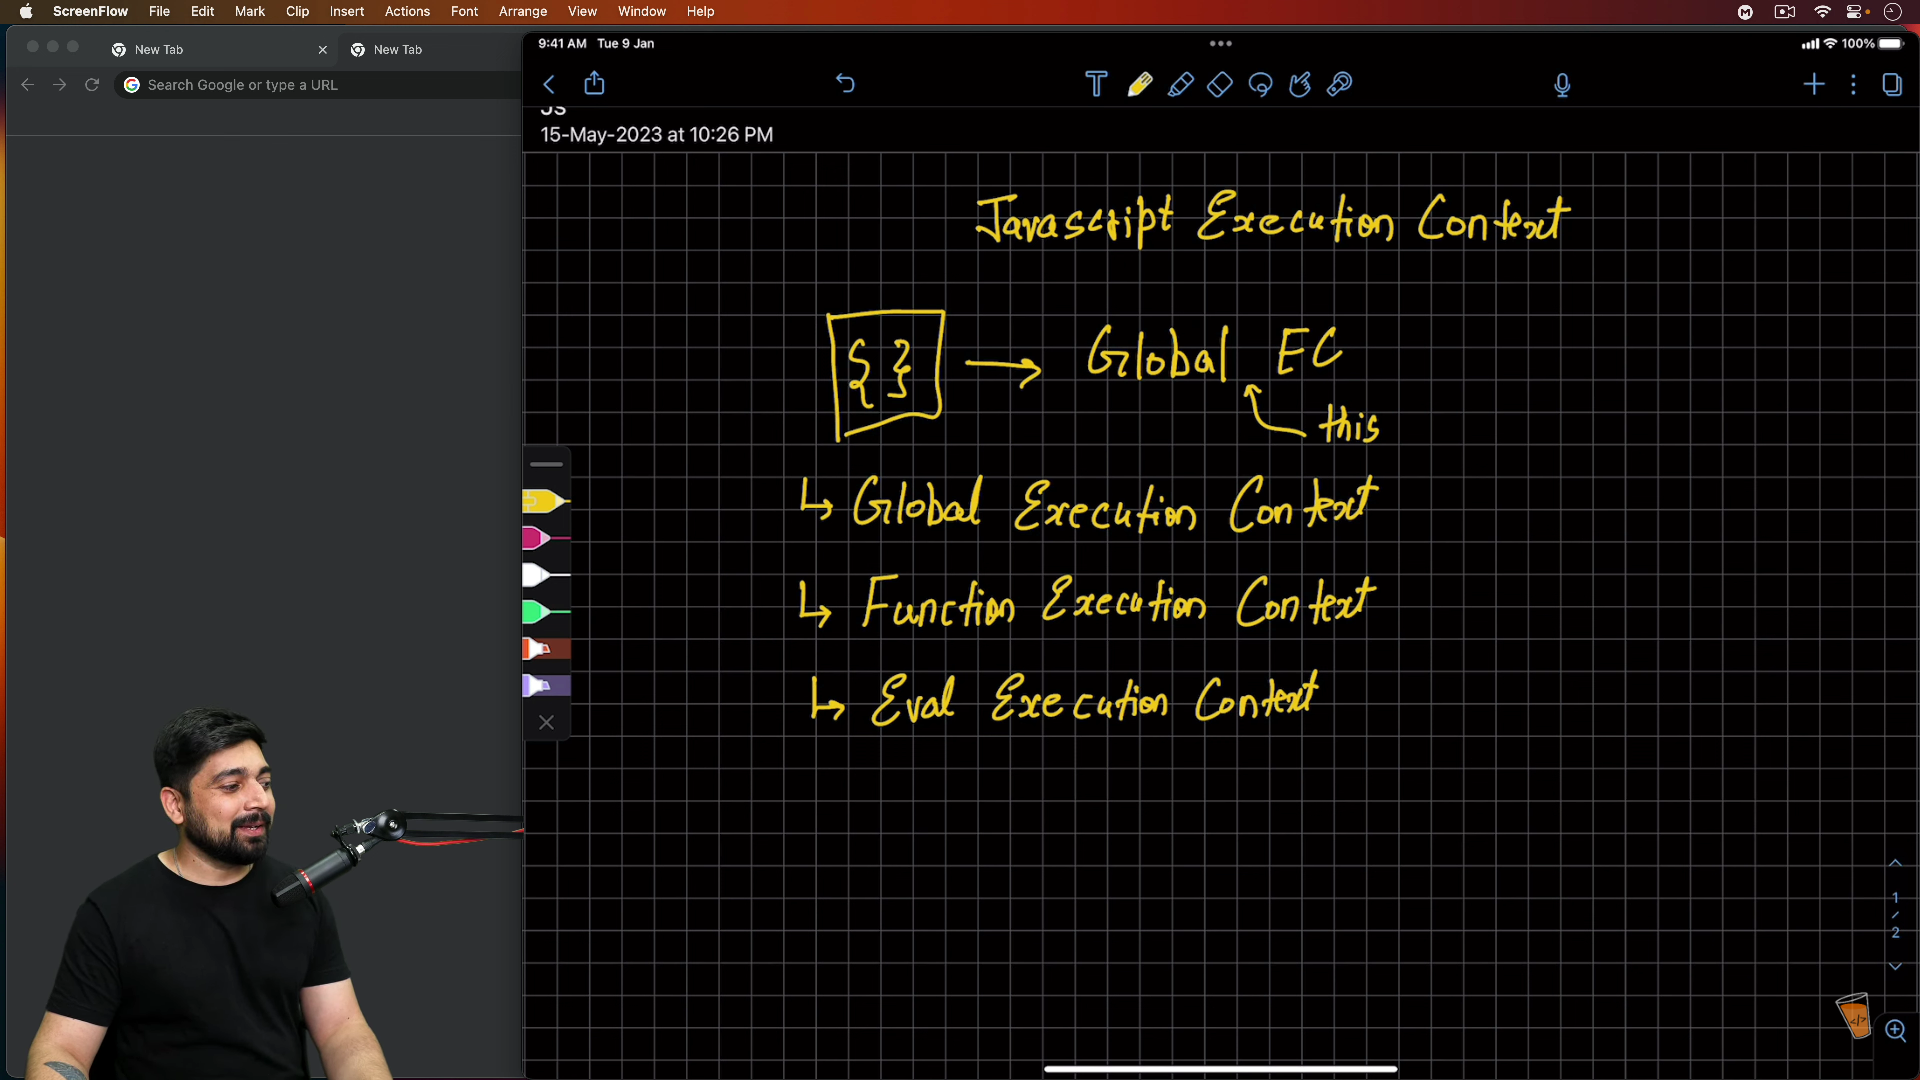 ScreenFlow File Edit Mark Clip Insert Actions Font Arrange View Window Help
New Tab New Tab
Search Google or type a URL
9:41 AM Tue 9 Jan 100%
JS
15-May-2023 at 10:26 PM
Javascript Execution Context
{ } → Global EC
this
↳ Global Execution Context
↳ Function Execution Context
↳ Eval Execution Context
1
/
2
</>